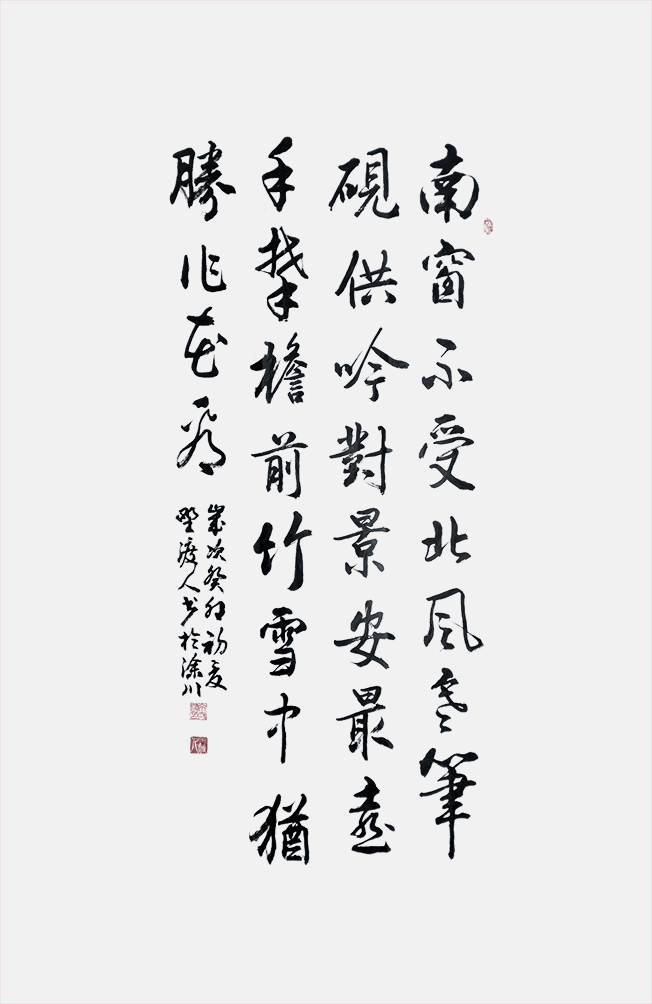 南窗不受北风寒筆
硯供吟對景安最憙
手栽檐前竹雪中猶
勝作花看
歲次癸卯初夏
野渡人书於滁川